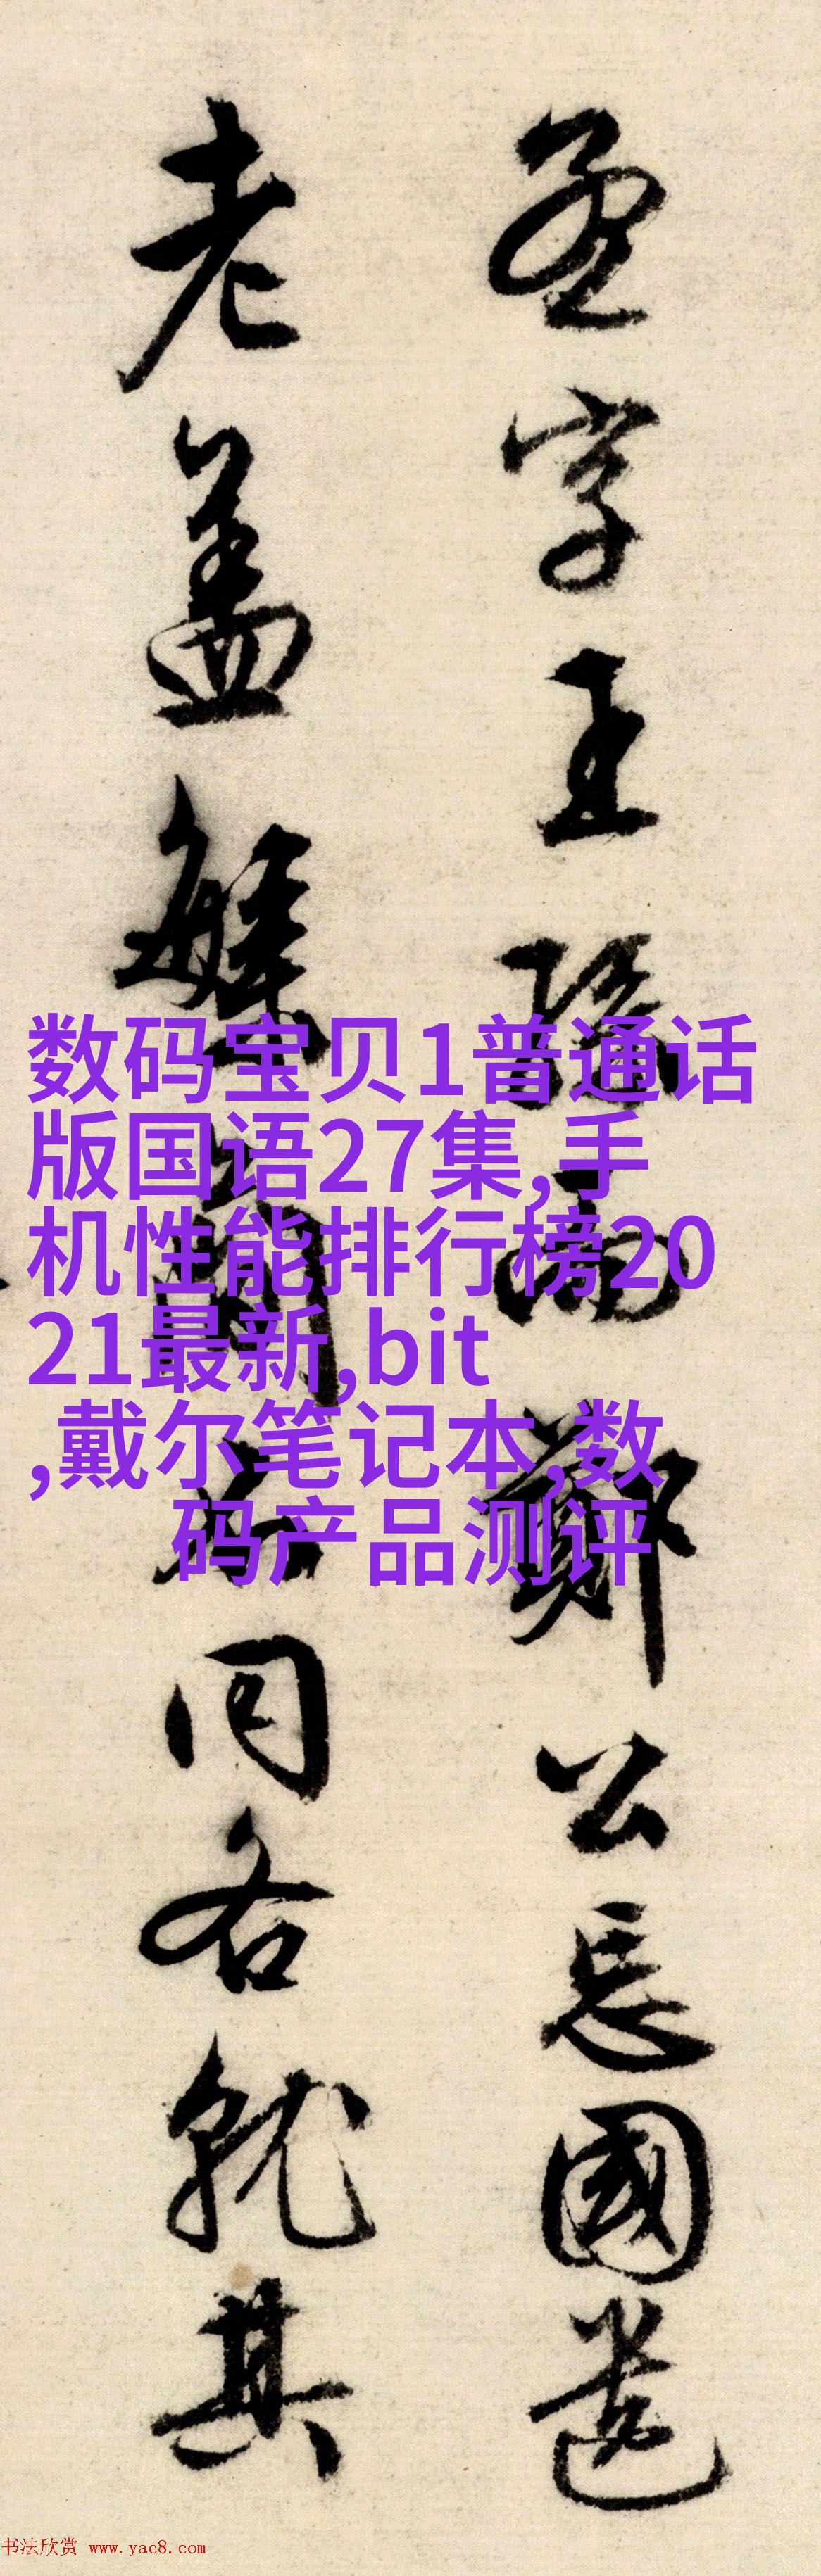 字王 而鄭公忘國
老盖 同各就其
数码宝贝1普通话
版国语27集,手
机性能排行榜20
21最新,bit
,戴尔笔记本,数
码产品测评
书法欣赏 www.yac8.com